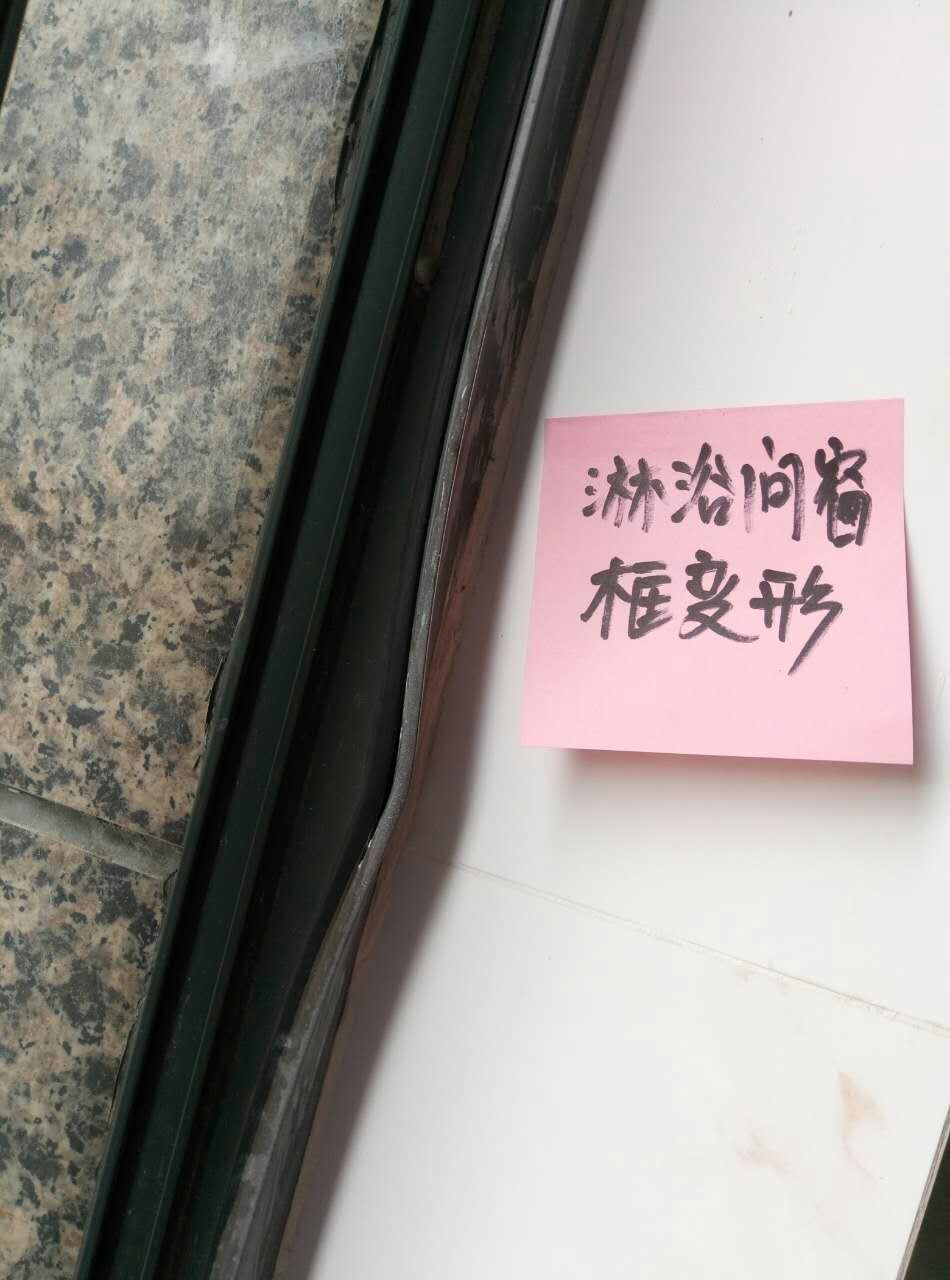 淋浴间窗
框变形